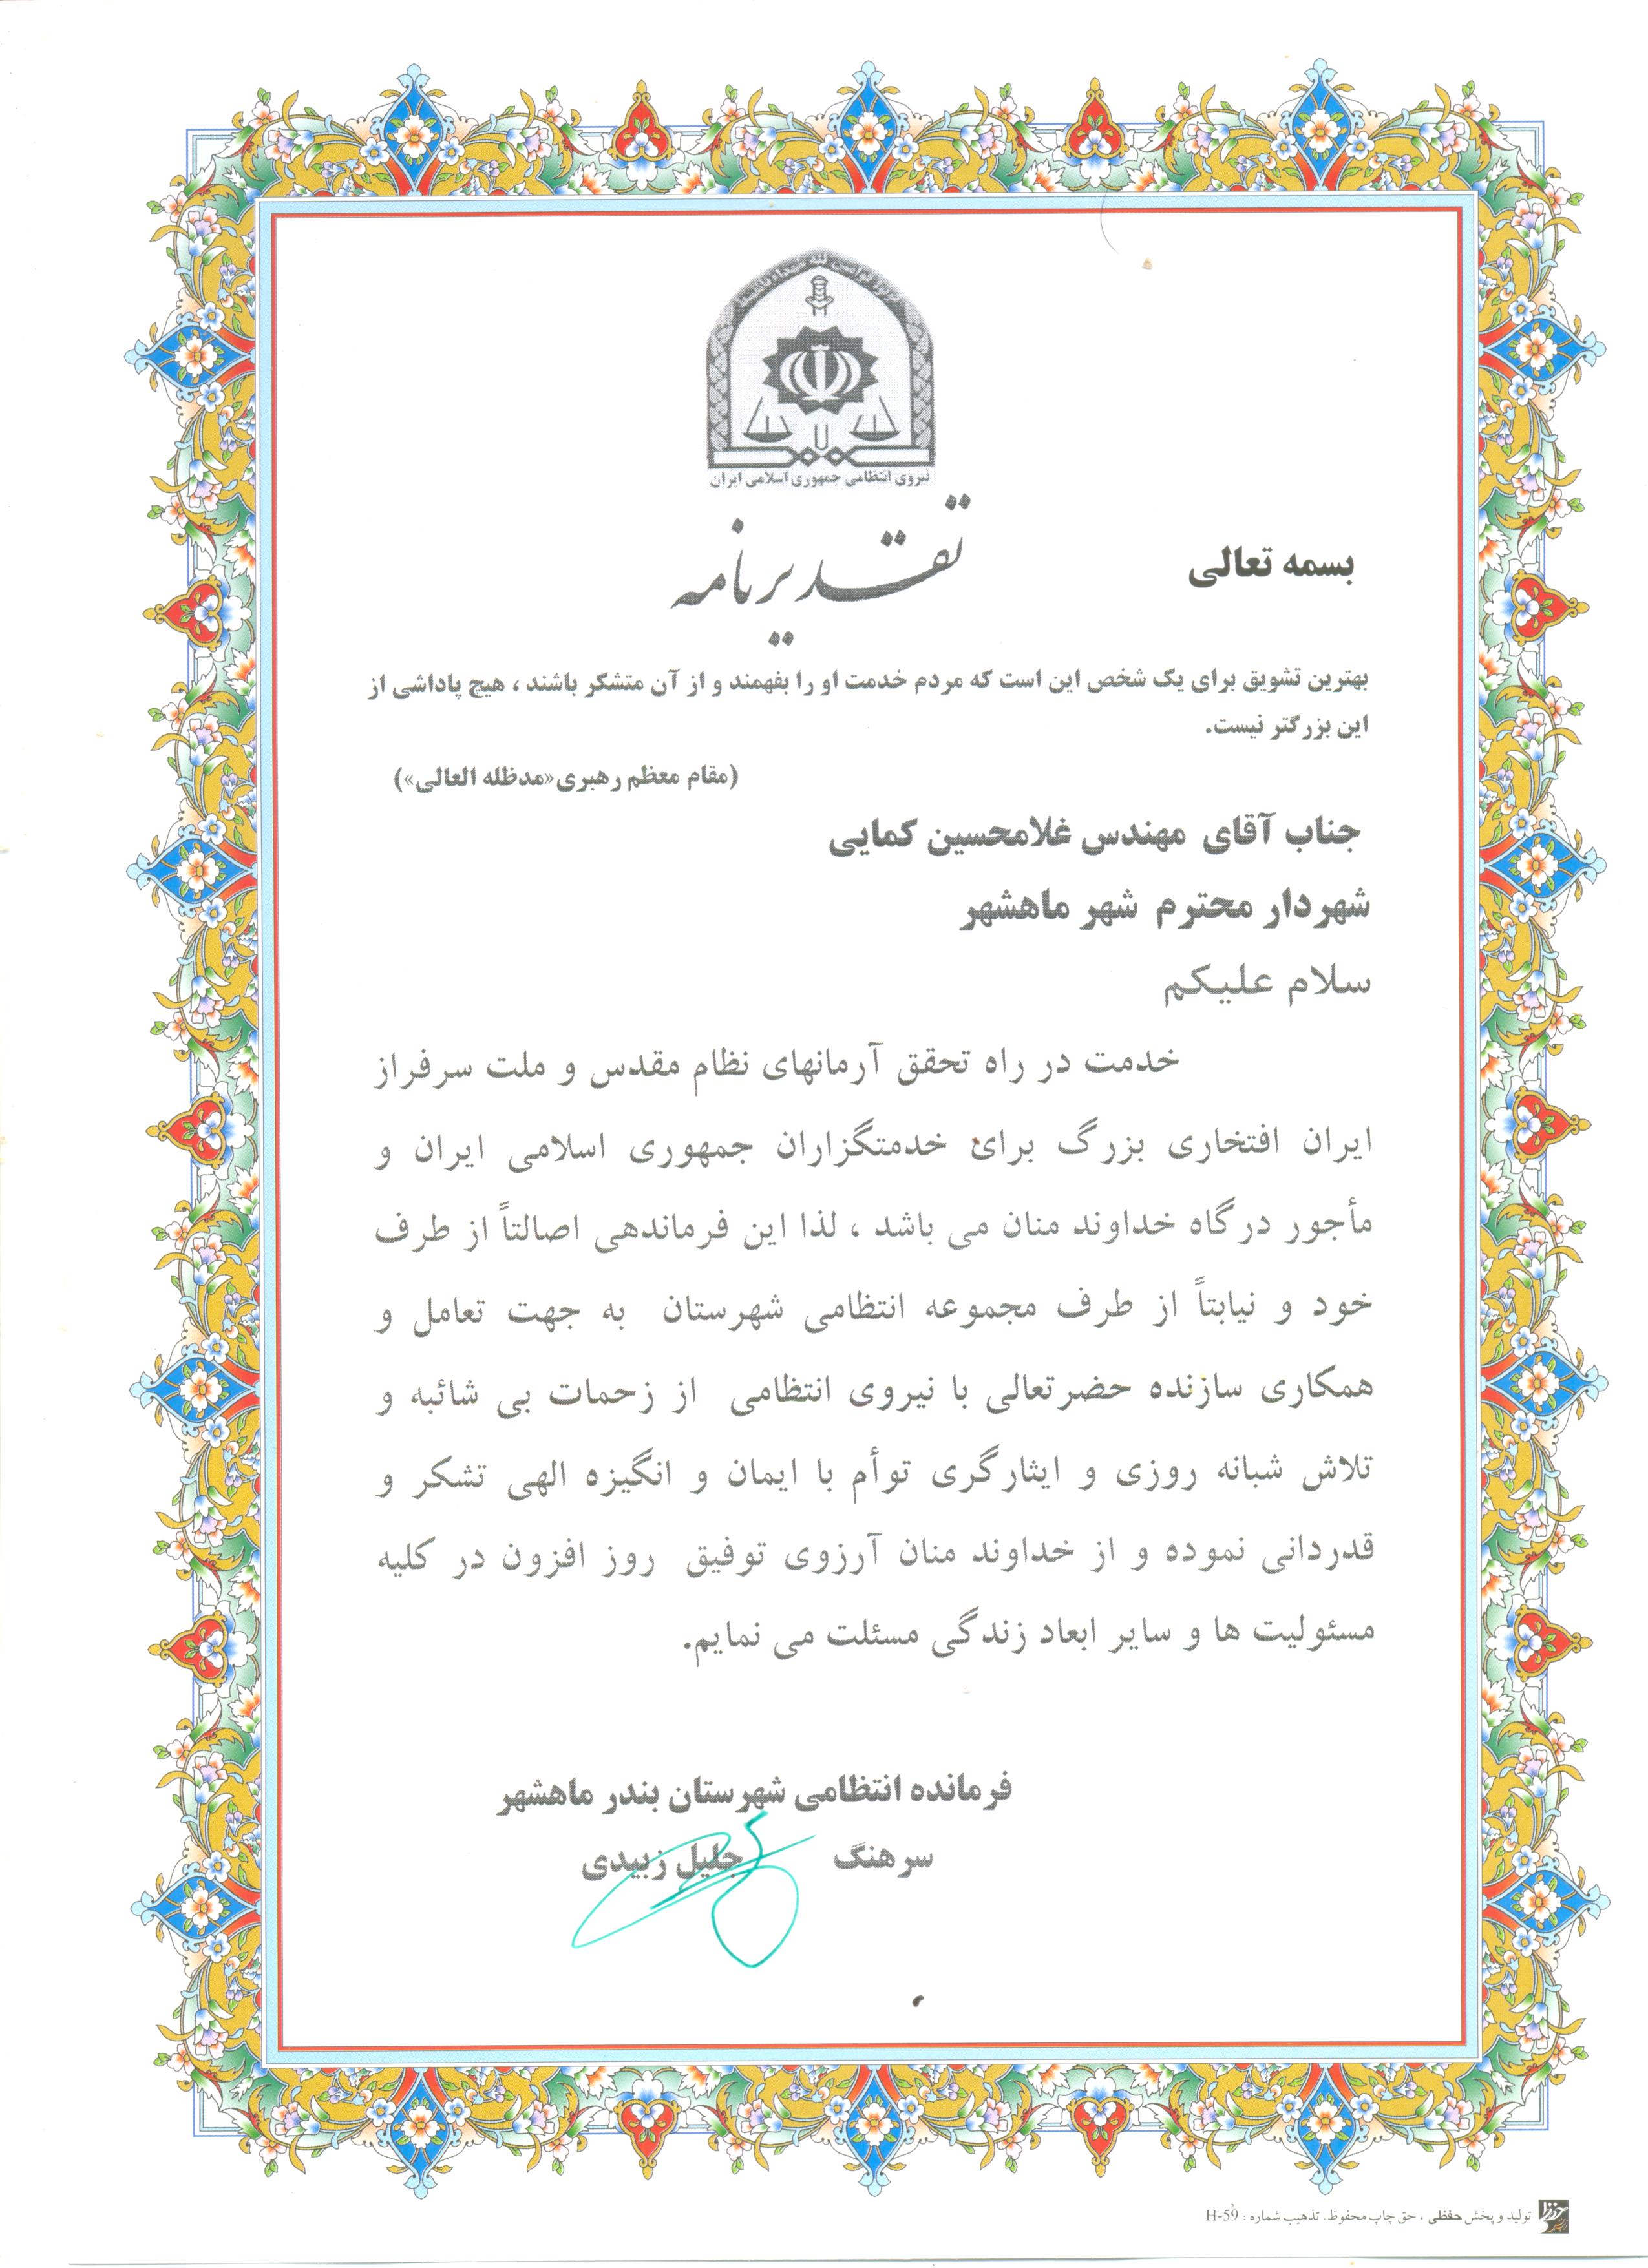 نیروی انتظامی جمهوری اسلامی ایران
تقدیرنامه
بسمه تعالی
بهترین تشویق برای یک شخص این است که مردم خدمت او را بفهمند و از آن متشکر باشند ، هیچ پاداشی از
این بزرگتر نیست.
(مقام معظم رهبری«مدظله العالی»)
جناب آقای مهندس غلامحسین کمایی
شهردار محترم شهر ماهشهر
سلام علیکم
خدمت در راه تحقق آرمانهای نظام مقدس و ملت سرفراز
ایران افتخاری بزرگ برای خدمتگزاران جمهوری اسلامی ایران و
مأجور درگاه خداوند منان می باشد ، لذا این فرماندهی اصالتاً از طرف
خود و نیابتاً از طرف مجموعه انتظامی شهرستان به جهت تعامل و
همکاری سازنده حضرتعالی با نیروی انتظامی از زحمات بی شائبه و
تلاش شبانه روزی و ایثارگری توأم با ایمان و انگیزه الهی تشکر و
قدردانی نموده و از خداوند منان آرزوی توفیق روز افزون در کلیه
مسئولیت ها و سایر ابعاد زندگی مسئلت می نمایم.
فرمانده انتظامی شهرستان بندر ماهشهر
سرهنگ جلیل زبیدی
تولید و پخش حفظی ، حق چاپ محفوظ. تذهیب شماره : H-59